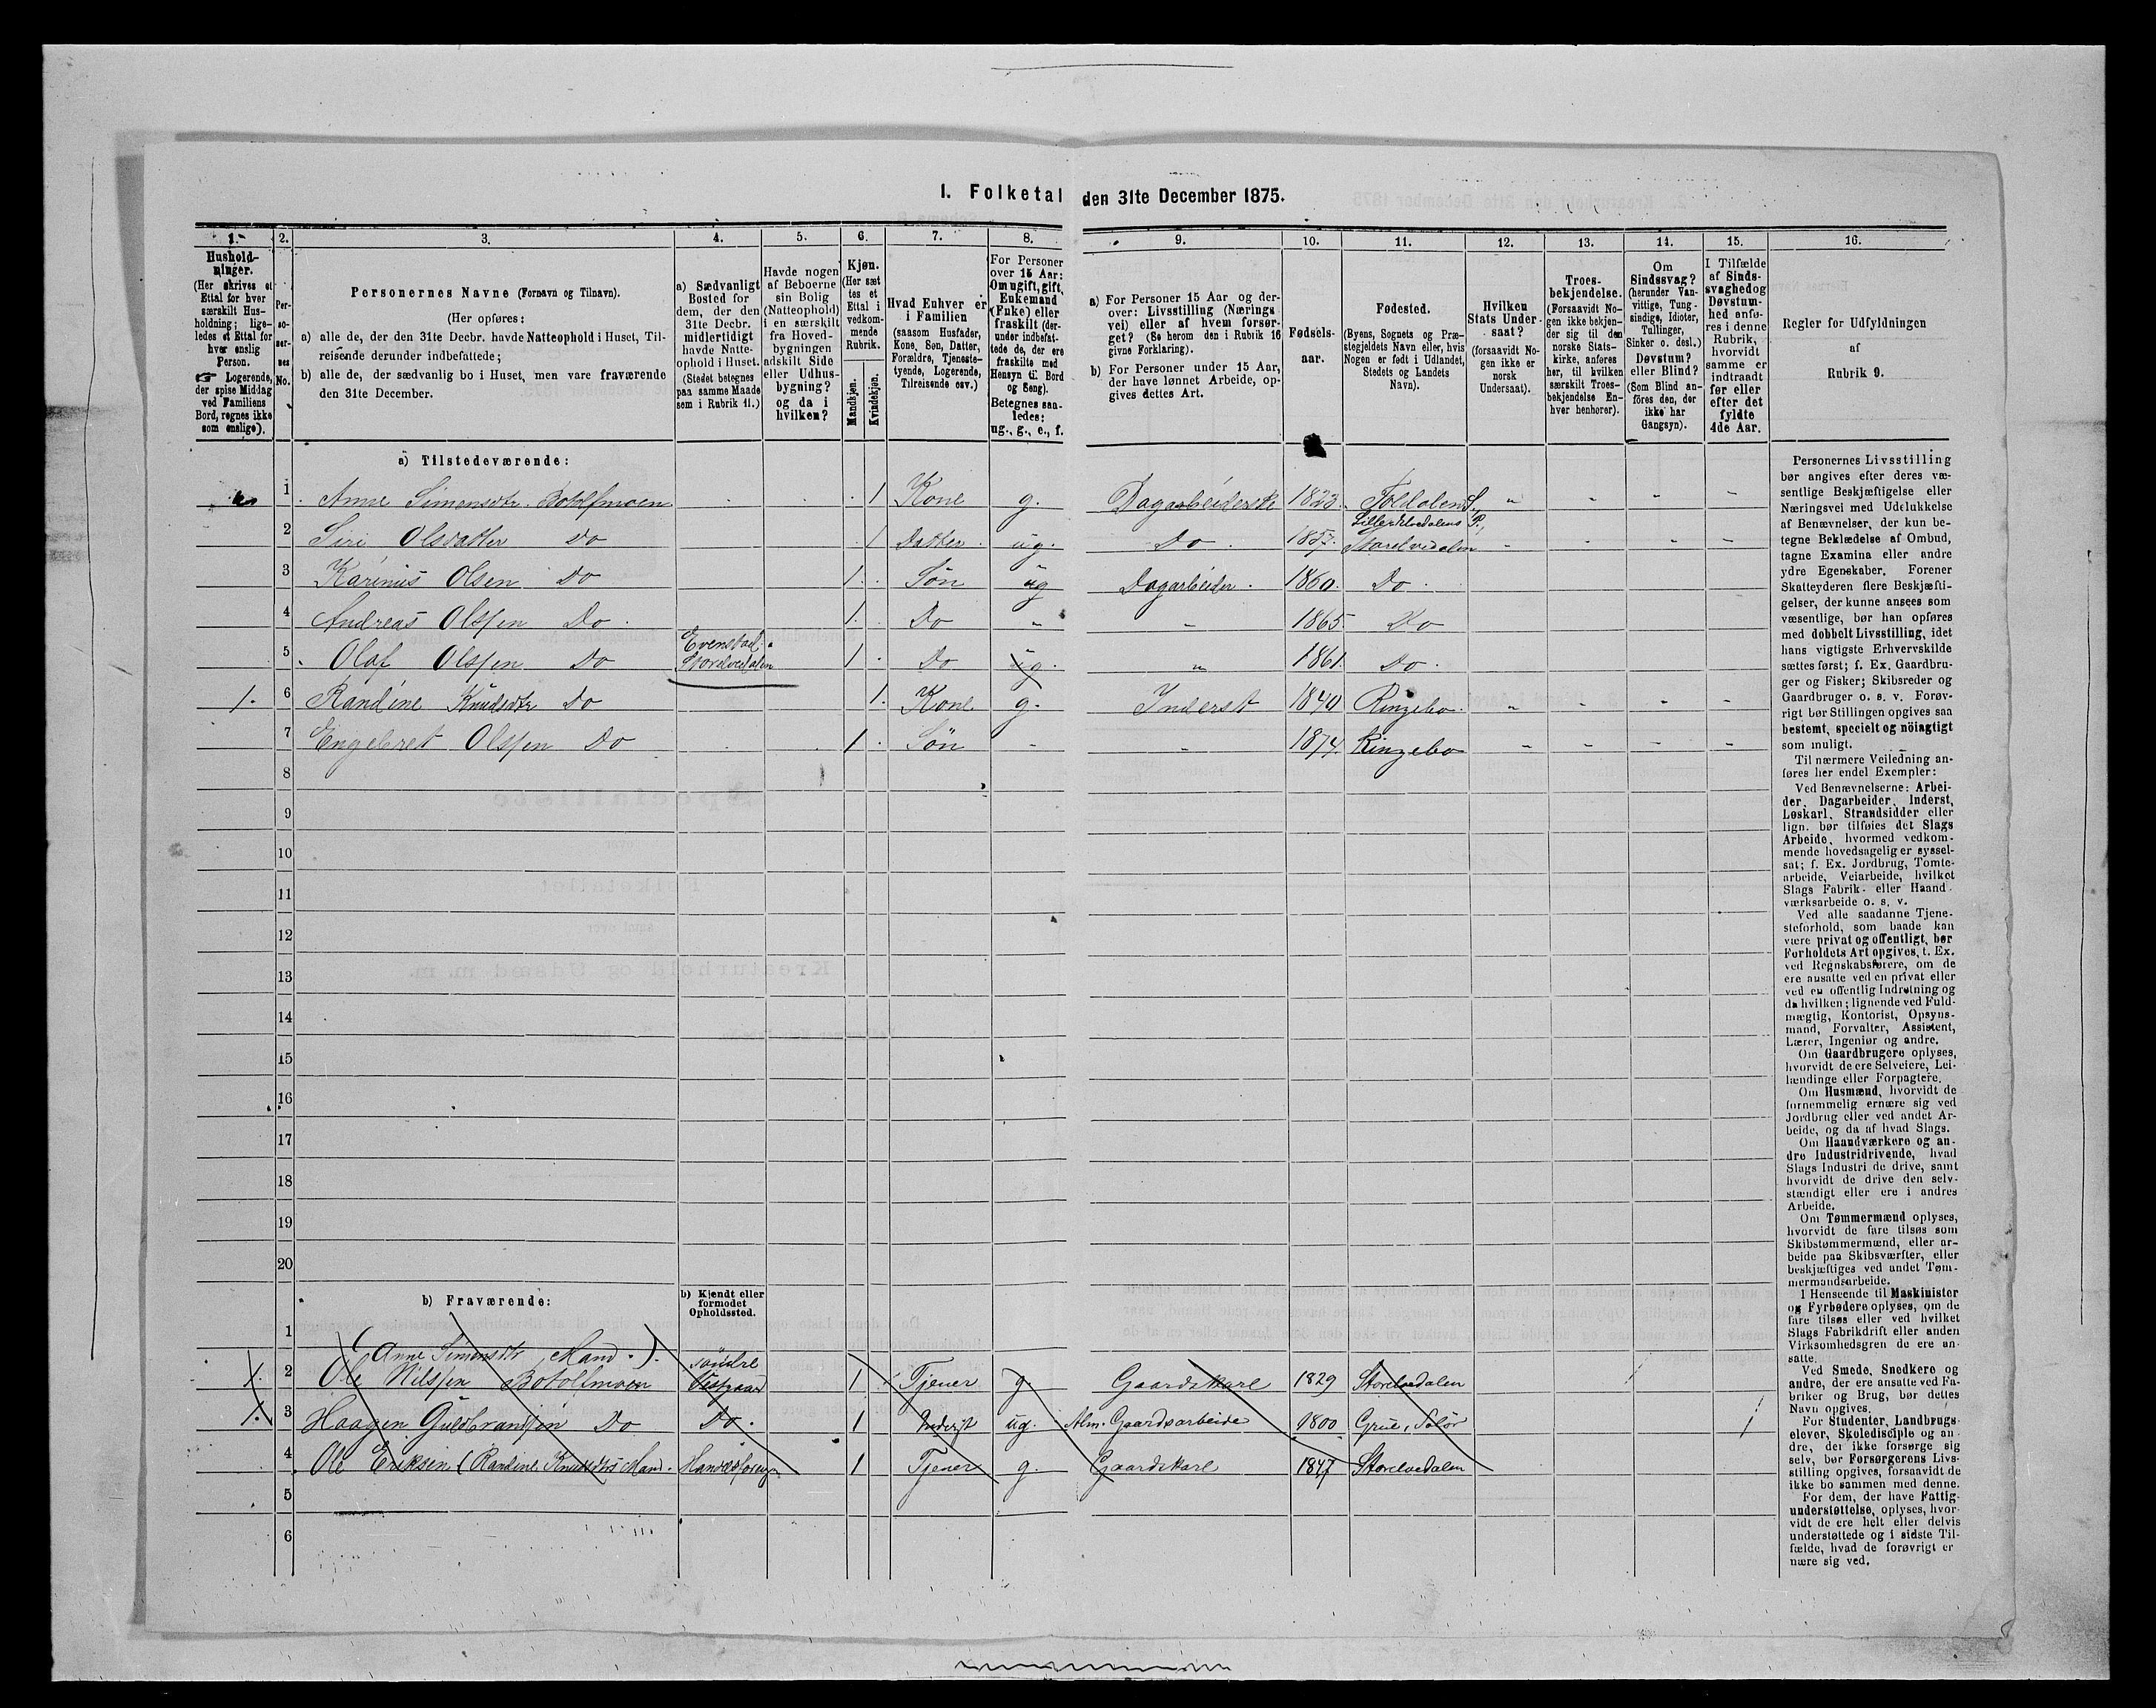 I. Folketal den 31te December 1875.
1. 2. 3. 4. 5. 6. 7. 8. 9. 10. 11. 12. 13. 14. 15. 16.
Hushold-
ninger.
(Her skrives et
Ettal for hver
særskilt Hus-
holdning; lige-
ledes et Ettal for
hver enslig
Person.
☞ Logerende,
der spise Middag
ved Familiens
Bord, regnes ikke
som enslige).
Per-
so-
ner-
nes
No.
Personernes Navne (Fornavn og Tilnavn).
(Her opføres:
a) alle de, der den 31te Decbr. havde Natteophold i Huset, Til-
reisende derunder indbefattede;
b) alle de, der sædvanlig bo i Huset, men vare fraværende
den 31te December.
a) Sædvanligt
Bosted for
dem, der den
31te Decbr.
midlertidigt
havde Natte-
ophold i Huset.
(Stedet betegnes
paa samme Maade
som i Rubrik 11.)
Havde nogen
af Beboerne
sin Bolig
(Natteophold)
i en særskilt
fra Hoved-
bygningen
adskilt Side
eller Udhus-
bygning?
og da i
hvilken?
Kjøn.
(Her sæt
tes et
Ettal i
vedkom-
mende
Rubrik.
Mandkjøn.
Kvindekjøn.
Hvad Enhver er
i Familien
(saasom Husfader,
Kone, Søn, Datter,
Forældre, Tjeneste-
tyende, Logerende,
Tilreisende osv.)
For Personer
over 15 Aar:
Om ugift, gift,
Enkemand
(Enke) eller
fraskilt (der-
under indbefat-
tede de, der ere
fraskilte med
Hensyn til Bord
og Seng).
Betegnes saa-
ledes:
ug., g., e., f.
a) For Personer 15 Aar og der-
over: Livsstilling (Nærings
vei) eller af hvem forsør-
get? (Se herom den i Rubrik 16
givne Forklaring).
b) For Personer under 15 Aar,
der have lønnet Arbeide, op-
gives dettes Art.
Fødsels-
aar.
Fødested.
(Byens, Sognets og Præ-
stegjeldets Navn eller, hvis
Nogen er født i Udlandet,
Stedets og Landets
Navn).
Hvilken
Stats Under-
saat?
(forsaavidt No-
gen ikke er
norsk
Undersaat).
Troes-
bekjendelse.
(Forsaavidt No-
gen ikke bekjen-
der sig til den
norske Stats-
kirke, anføres
her, til hvilken
særskilt Troes-
bekjendelse En-
hver henhører).
Om
Sindssvag?
(herunder Van-
vittige, Tung-
sindige, Idioter,
Tullinger,
Sinker o. desl.)
Døvstum?
eller Blind?
(Som Blind an-
føres den, der
ikke har
Gangsyn).
I Tilfælde
af Sinds-
svaghed og
Døvstum-
hed anfø-
res i denne
Rubrik,
hvorvidt
samme er
indtraadt
før eller
efter det
fyldte
4de Aar.
Regler for Udfyldningen
af
Rubrik 9.
a) Tilstedeværende:
1 Anne Simensdtr. Botolfmoen 1 Kone g. Dagarbeiderske 1823. Foldalens S.,
Lilleelvedalens P.,
2 Siri Olsdatter Do 1 Datter ug. Do 1857. Storelvedalen
3 Karinus Olsen Do 1 Søn ug Dagarbeider 1860. Do
4 Andreas Olssen Do 1 Do " " 1865 Do
5 Olaf Olssen Do Evenstad Storelvedalen 1 Do ug. " 1861 Do
1. 6 Randine Knudsdtr Do 1 Kone g. Inderst 1840 Ringebo
7 Engebret Olssen Do 1 Søn - " 1874. Ringebo
8
9
10
11
12
13
14
15
16
17
18
19
20
b) Fraværende:
b) Kjendt eller
formodet
Opholdssted.
1 (Anne Simensdtr Mand.)
1. 2 Ole Nilssen Botolfmoen søndre Vestgaard 1 Tjener g. Gaardskarl 1829 Storelvedalen
1. 3 Haagen Guldbrandsen Do Do. 1 Inderst ug. Alm. Gaardsarbeide 1800 Grue, Solør
4 Ole Eriksen (Randine Knudsdtrs Mand. 1 Tjener g. Gaardskarl 1847 Storelvedalen
5
6
Personernes Livsstilling
bør angives efter deres væ-
sentlige Beskjæftigelse eller
Næringsvei med Udelukkelse
af Benævnelser, der kun be-
tegne Beklædelse af Ombud,
tagne Examina eller andre
ydre Egenskaber. Forener
Skatteyderen flere Beskjæfti-
gelser, der kunne ansees som
væsentlige, bør han opføres
med dobbelt Livsstilling, idet
hans vigtigste Erhvervskilde
sættes først; f. Ex. Gaardbru-
ger og Fisker; Skibsreder og
Gaardbruger o. s. v. Forøv-
rigt bør Stillingen opgives saa
bestemt, specielt og nöiagtigt
som muligt.
Til nærmere Veiledning an-
føres her endel Exempler:
Ved Benævnelserne: Arbei-
der, Dagarbeider, Inderst,
Løskarl, Strandsidder eller
lign. bør tilføies det Slags
Arbeide, hvormed vedkom-
mende hovedsagelig er syssel-
sat; f. Ex. Jordbrug, Tomte-
arbeide, Veiarbeide, hvilket
Slags Fabrik- eller Haand-
værksarbeide o. s. v.
Ved alle saadanne Tjene-
steforhold, som baade kan
være privat og offentligt, bør
Forholdets Art opgives, f. Ex.
ved Regnskabsførere, om de
ere ansatte ved en privat eller
ved en offentlig Indretning og
da hvilken; lignende ved Fuld-
mægtig, Kontorist, Opsyns-
mand, Forvalter, Assistent,
Lærer, Ingeniør og andre.
Om Gaardbrugere oplyses,
hvorvidt de ere Selveiere, Lei-
lændinge eller Forpagtere.
Om Husmænd, hvorvidt de
fornemmelig ernære sig ved
Jordbrug eller ved andet Ar-
beide, og da af hvad Slags.
Om Haandværkere og an-
dre Industridrivende, hvad
Slags Industri de drive, samt
hvorvidt de drive den selv-
stændigt eller ere i andres
Arbeide.
Om Tømmermænd oplyses,
hvorvidt de fare tilsøs som
Skibstømmermænd, eller ar-
beide paa Skibsværfter, eller
beskjæftiges ved andet Tøm-
mermandsarbeide.
I Henseende til Maskinister
og Fyrbødere oplyses, om de
fare tilsøs eller ved hvilket
Slags Fabrikdrift eller anden
Virksomhedsgren de ere an-
satte.
Ved Smede, Snedkere og
andre, der ere ansatte ved Fa-
briker og Brug, bør dettes
Navn opgives.
For Studenter, Landbrugs-
elever, Skoledisciple og an-
dre, der ikke forsørge sig
selv, bør Forsørgerens Livs-
stilling opgives, forsaavidt de
ikke bo sammen med denne.
For dem, der have Fattig-
understøttelse, oplyses, hvor-
vidt de ere helt eller delvis
understøttede og i sidste Til-
fælde, hvad de forøvrigt er
nære sig ved.